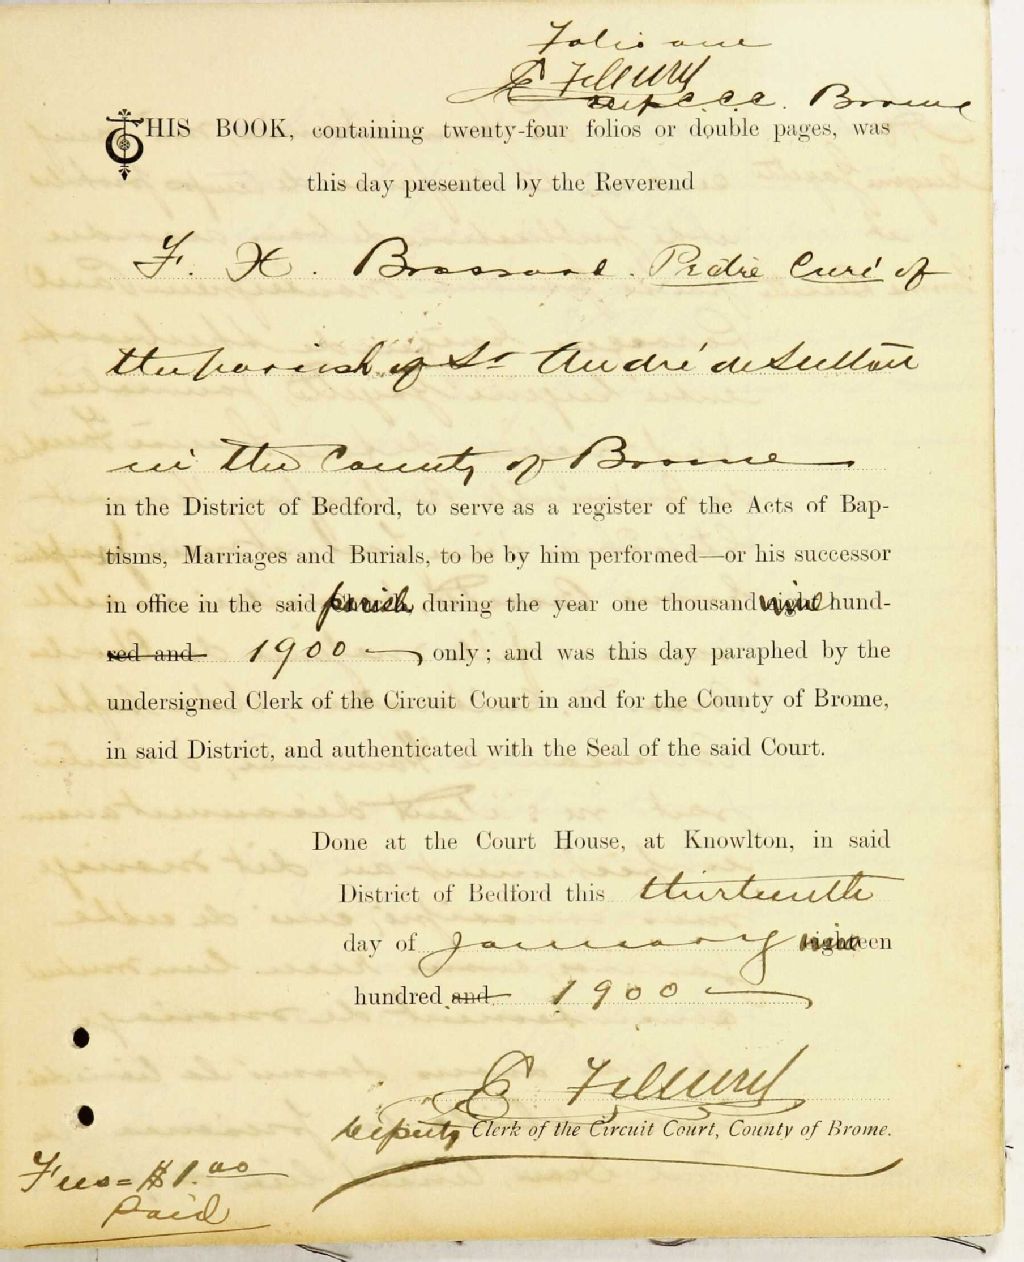 Folio one
E Fleury
Dep C.C.C. Brome
THIS BOOK, containing twenty-four folios or double pages, was
this day presented by the Reverend
F. X. Brassard. Prêtre Curé of
the parish of St André de Sutton
in the County of Brome
in the District of Bedford, to serve as a register of the Acts of Bap-
tisms, Marriages and Burials, to be by him performed—or his successor
in office in the said parish during the year one thousand nine hund-
red and 1900 only; and was this day paraphed by the
undersigned Clerk of the Circuit Court in and for the County of Brome,
in said District, and authenticated with the Seal of the said Court.
Done at the Court House, at Knowlton, in said
District of Bedford this thirteenth
day of January nineteen
hundred and 1900
E Fleury
Deputy Clerk of the Circuit Court, County of Brome.
Fees = $1.00
Paid